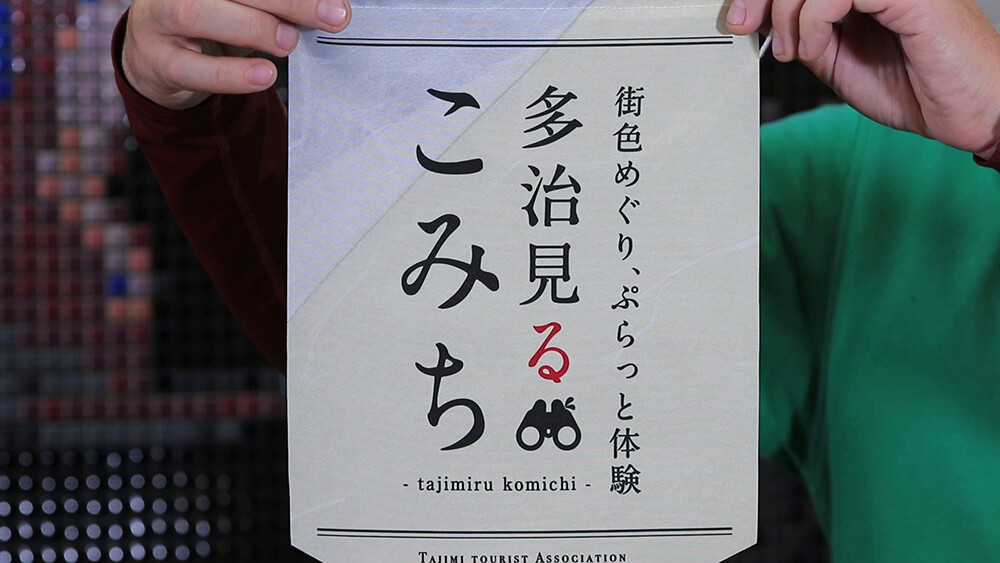 街色めぐり、ぷらっと体験
多治見る
こみち
- tajimiru komichi -
TAJIMI TOURIST ASSOCIATION